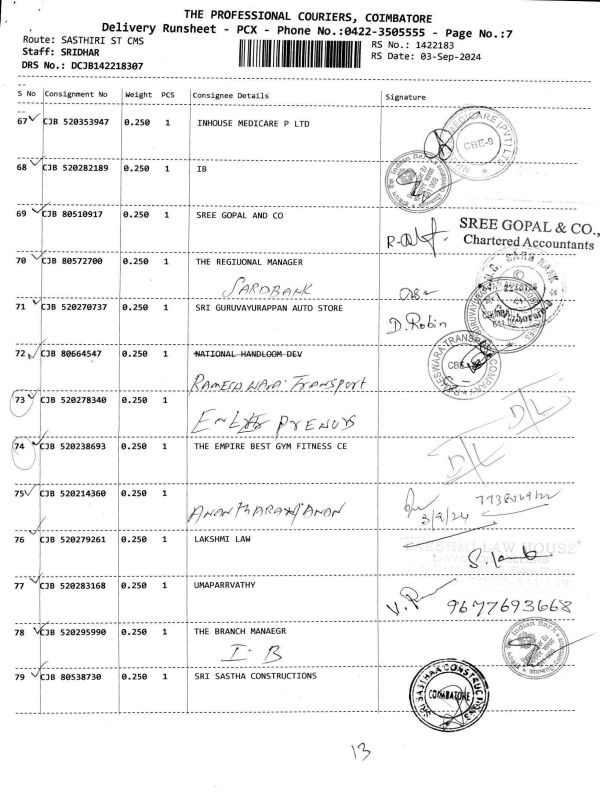 THE PROFESSIONAL COURIERS, COIMBATORE
Delivery Runsheet - PCX - Phone No.:0422-3505555 - Page No.:7
Route: SASTHIRI ST CMS
Staff: SRIDHAR
DRS No.: DCJB142218307
RS No.: 1422183
RS Date: 03-Sep-2024
S No Consignment No Weight PCS Consignee Details Signature
67 CJB 520353947 0.250 1 INHOUSE MEDICARE P LTD
MEDICARE (PVT) LTD
CBE-9
68 CJB 520282189 0.250 1 IB
Indian Bank
69 CJB 80510917 0.250 1 SREE GOPAL AND CO
SREE GOPAL & CO.,
Chartered Accountants
70 CJB 80572700 0.250 1 THE REGIUONAL MANAGER
SARDBANK
71 CJB 520270737 0.250 1 SRI GURUVAYURAPPAN AUTO STORE
D. Robin
72 CJB 80664547 0.250 1 NATIONAL HANDLOOM DEV
RAMESWARA TRANSPORT
RAMESWARA TRANSPORT COMPANY
CBE
73 CJB 520278340 0.250 1
D/L
74 CJB 520238693 0.250 1 THE EMPIRE BEST GYM FITNESS CE
D/L
75 CJB 520214360 0.250 1
3/9/24
76 CJB 520279261 0.250 1 LAKSHMI LAW
LAKSHMI LAW HOUSE
77 CJB 520283168 0.250 1 UMAPARRVATHY
9677693668
78 CJB 520295990 0.250 1 THE BRANCH MANAEGR
I-B
Indian Bank
79 CJB 80538730 0.250 1 SRI SASTHA CONSTRUCTIONS
SRI SASTHAA CONSTRUCTIONS
COIMBATORE
13